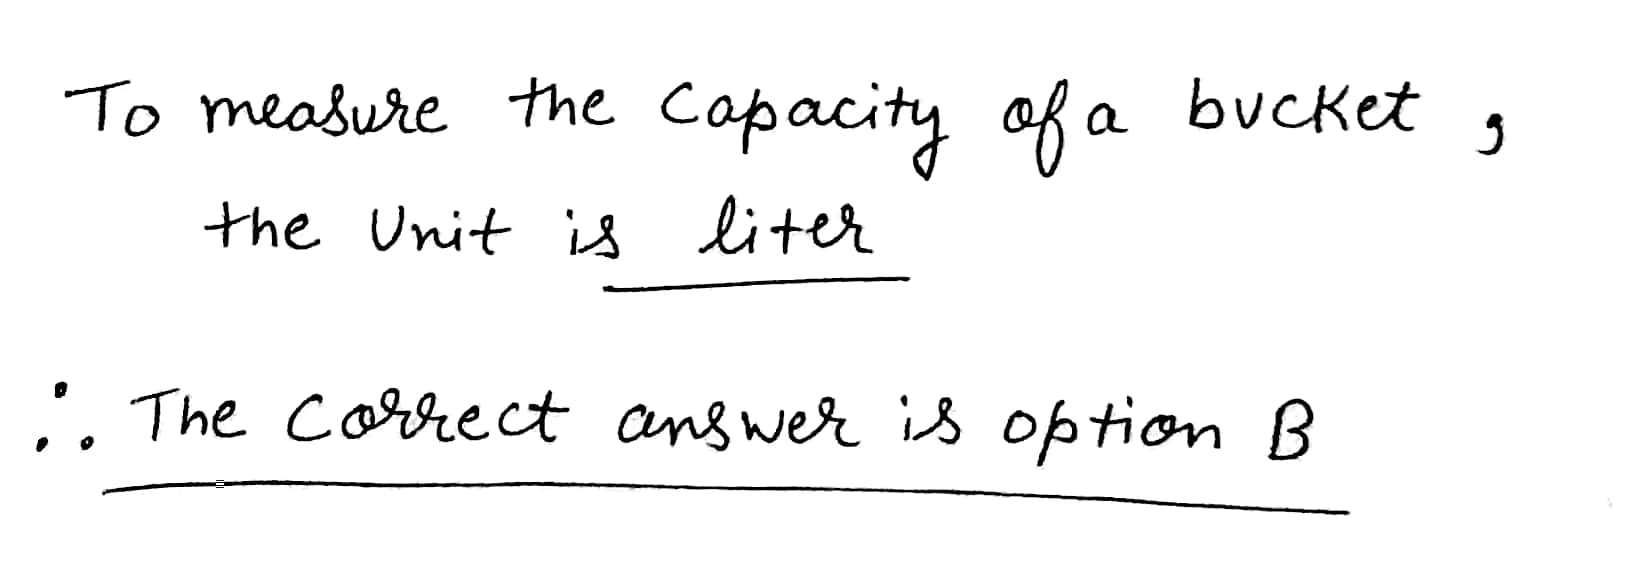 To measure the Capacity of a bucket ,
the Unit is liter
∴ The Correct answer is option B